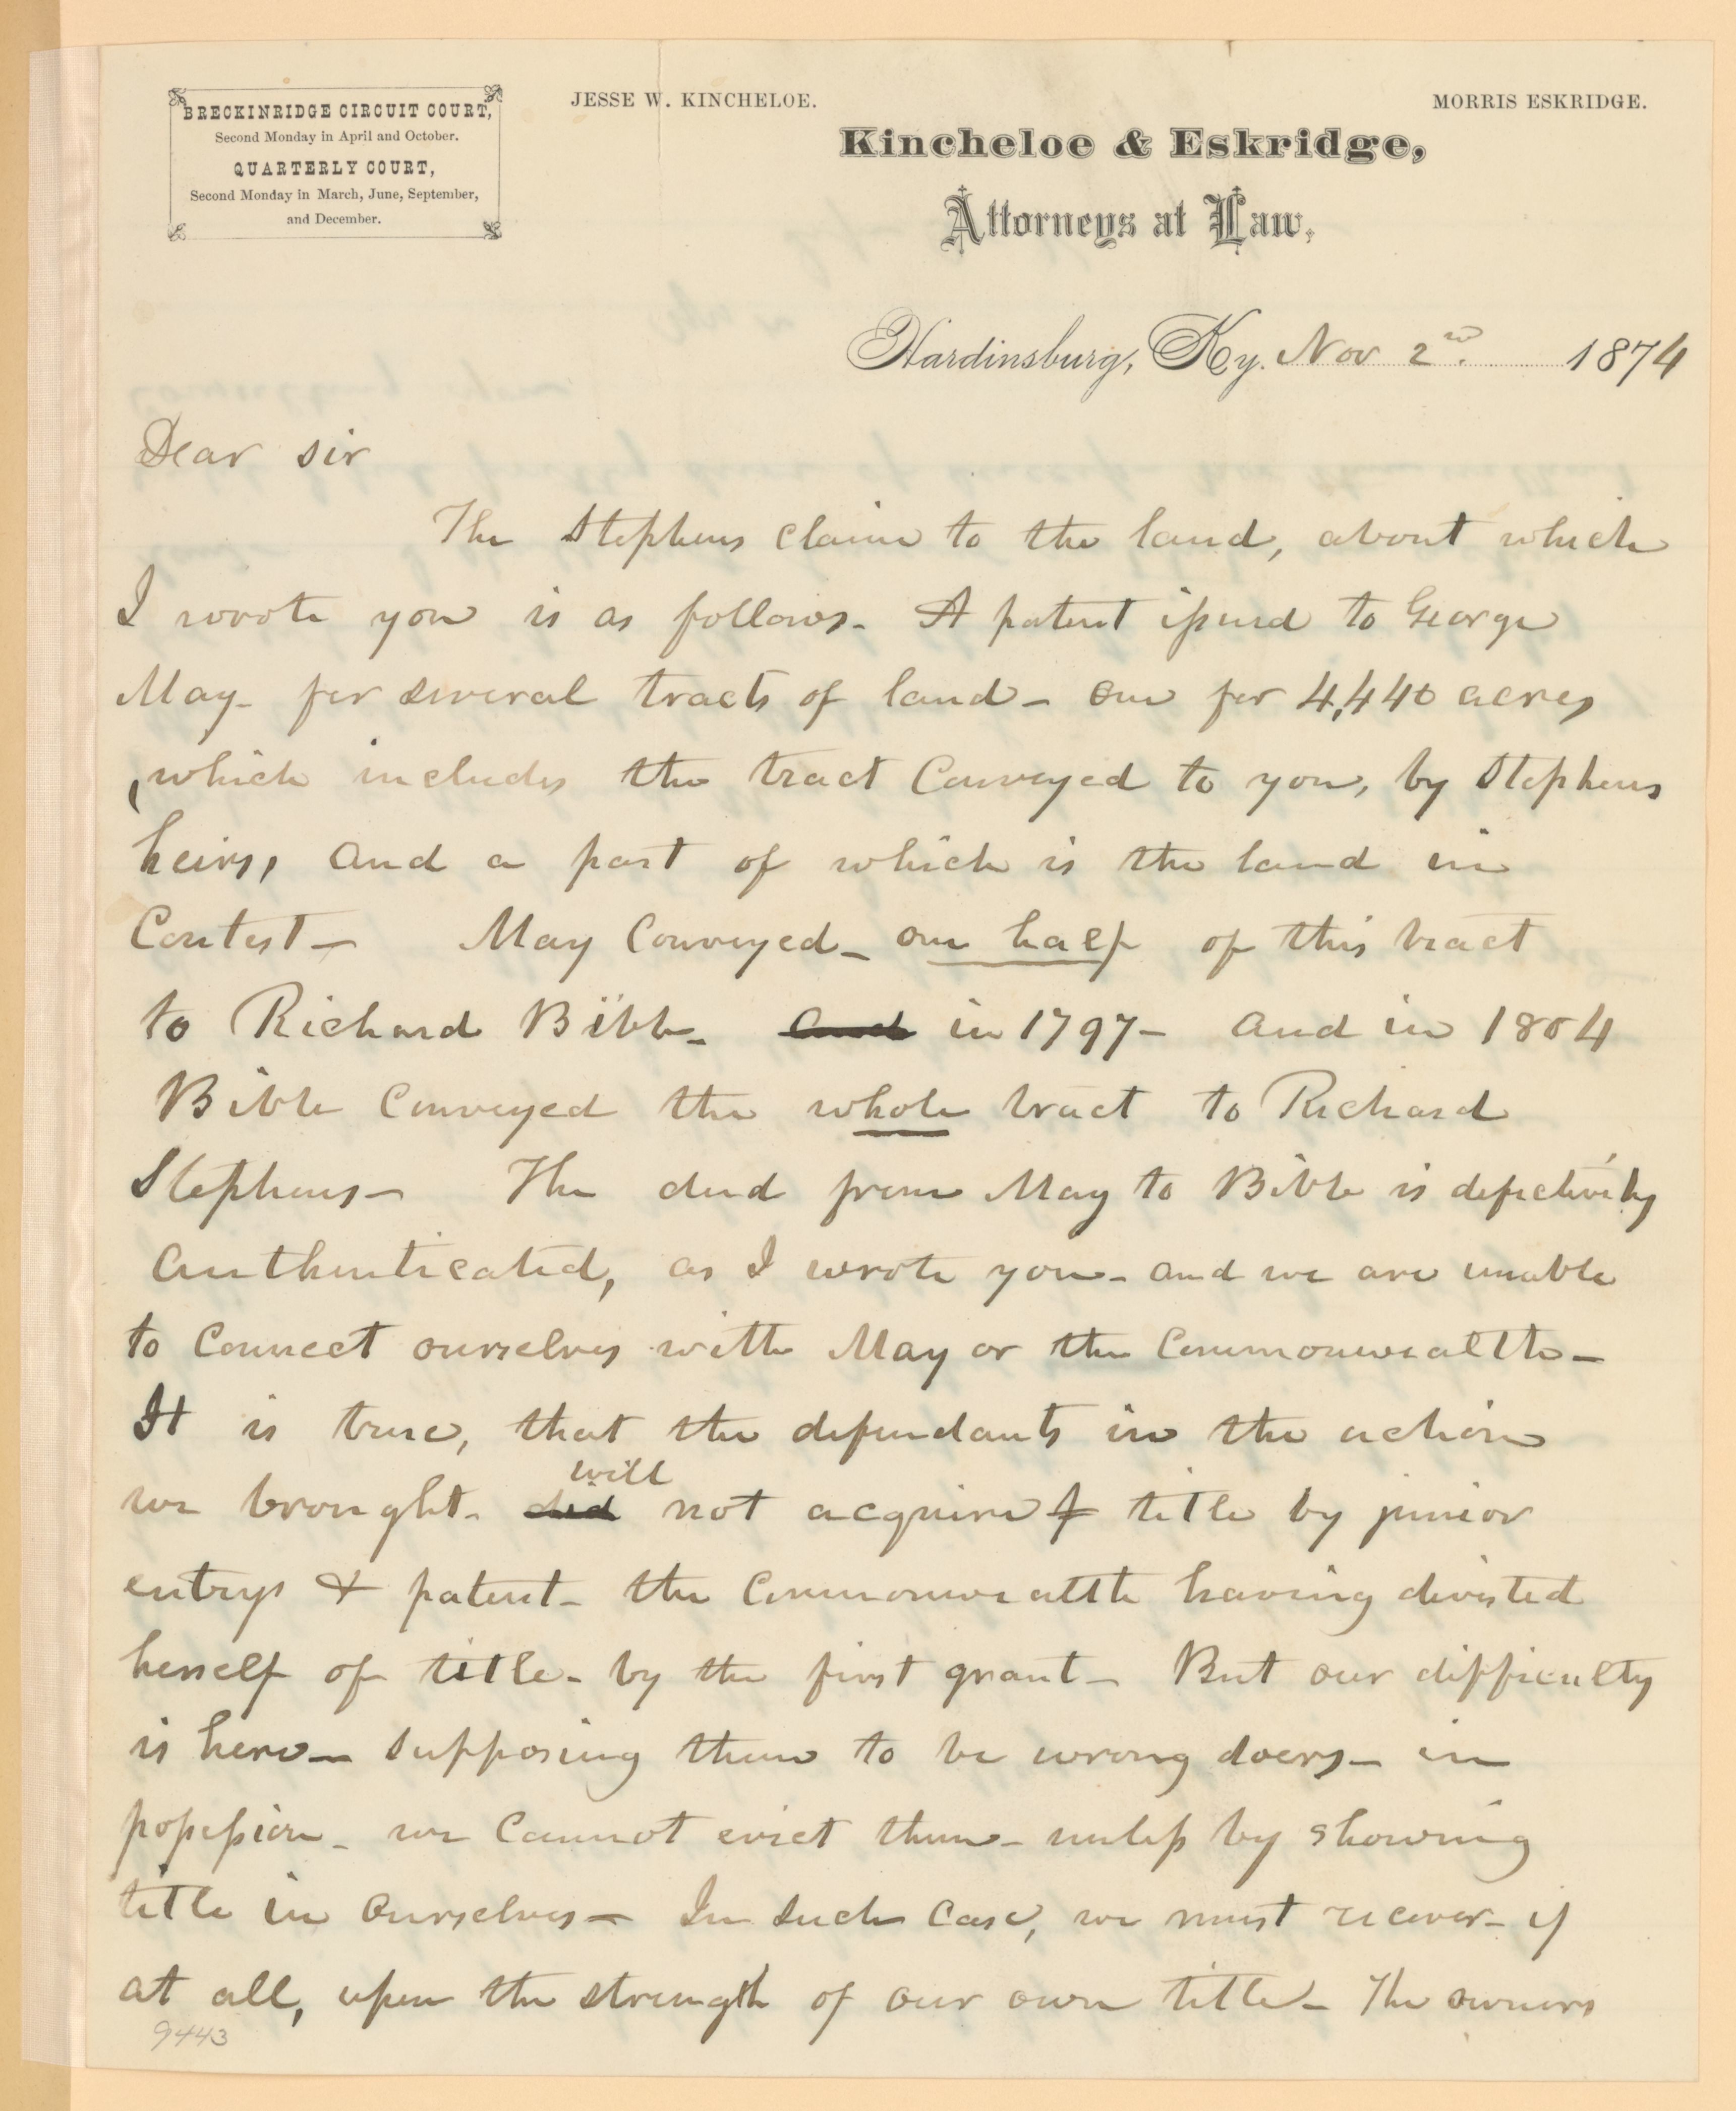 BRECKINRIDGE CIRCUIT COURT,
Second Monday in April and October.
QUARTERLY COURT,
Second Monday in March, June, September,
and December.
JESSE W. KINCHELOE. MORRIS ESKRIDGE.
Kincheloe & Eskridge,
Attorneys at Law,
Hardinsburg, Ky. Nov 2nd. 1874
Dear sir
The Stephens claim to the land, about which
I wrote you is as follows. A patent issued to George
May for several tracts of land - one for 4,440 acres
(which includes the tract conveyed to you, by Stephens
heirs, and a part of which is the land in
Contest - May Conveyed - one half of this tract
to Richard Bibb - and in 1797 - and in 1804
Bibb conveyed the whole tract to Richard
Stephens - The deed from May to Bibb is defectively
authenticated, as I wrote you - and we are unable
to connect ourselves with May or the Commonwealth -
It is true, that the defendants in the action
will
we brought - did not acquire title by junior
entrys & patent - the Commonwealth having divested
herself of title - by the first grant - But our difficulty
is here - supposing them to be wrong doers - in
possession - we cannot evict them - unless by showing
title in ourselves - In such case, we must recover - if
at all, upon the strength of our own title - The owners
9443